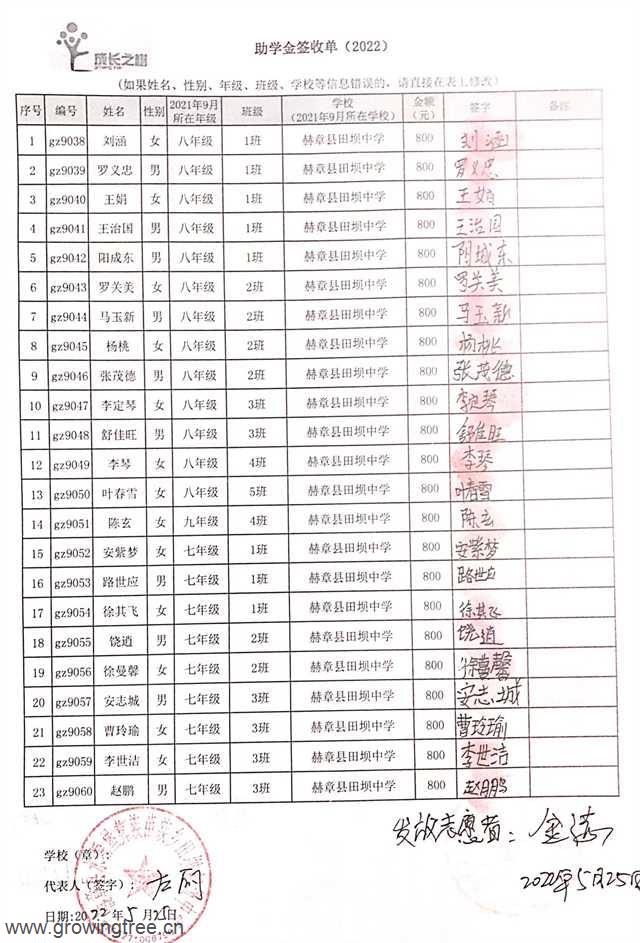 成长之树
助学金签收单（2022）
(如果姓名、性别、年级、班级、学校等信息错误的，请直接在表上修改)
序号 编号 姓名 性别 2021年9月所在年级 班级 学校（2021年9月所在学校） 金额（元） 签字 备注
1 gz9038 刘涵 女 八年级 1班 赫章县田坝中学 800 刘涵
2 gz9039 罗义忠 男 八年级 1班 赫章县田坝中学 800 罗义忠
3 gz9040 王娟 女 八年级 1班 赫章县田坝中学 800 王娟
4 gz9041 王治国 男 八年级 1班 赫章县田坝中学 800 王治国
5 gz9042 阳成东 男 八年级 1班 赫章县田坝中学 800 阴城东
6 gz9043 罗关美 女 八年级 2班 赫章县田坝中学 800 罗关美
7 gz9044 马玉新 男 八年级 2班 赫章县田坝中学 800 马玉新
8 gz9045 杨桃 女 八年级 2班 赫章县田坝中学 800 杨桃
9 gz9046 张茂德 男 八年级 2班 赫章县田坝中学 800 张茂德
10 gz9047 李定琴 女 八年级 3班 赫章县田坝中学 800 李定琴
11 gz9048 舒佳旺 男 八年级 3班 赫章县田坝中学 800 舒佳旺
12 gz9049 李琴 女 八年级 4班 赫章县田坝中学 800 李琴
13 gz9050 叶春雪 女 八年级 5班 赫章县田坝中学 800 叶春雪
14 gz9051 陈玄 女 九年级 4班 赫章县田坝中学 800 陈玄
15 gz9052 安紫梦 女 七年级 1班 赫章县田坝中学 800 安紫梦
16 gz9053 路世应 男 七年级 1班 赫章县田坝中学 800 路世应
17 gz9054 徐其飞 女 七年级 1班 赫章县田坝中学 800 徐其飞
18 gz9055 饶逍 男 七年级 2班 赫章县田坝中学 800 饶逍
19 gz9056 徐曼馨 女 七年级 2班 赫章县田坝中学 800 徐曼馨
20 gz9057 安志城 男 七年级 3班 赫章县田坝中学 800 安志城
21 gz9058 曹玲瑜 女 七年级 3班 赫章县田坝中学 800 曹玲瑜
22 gz9059 李世洁 女 七年级 3班 赫章县田坝中学 800 李世洁
23 gz9060 赵鹏 男 七年级 3班 赫章县田坝中学 800 赵鹏
发放志愿者：金
学校（章）：
代表人（签字）：
2022年5月25日
日期:2022年5月25日
www.growingtree.cn